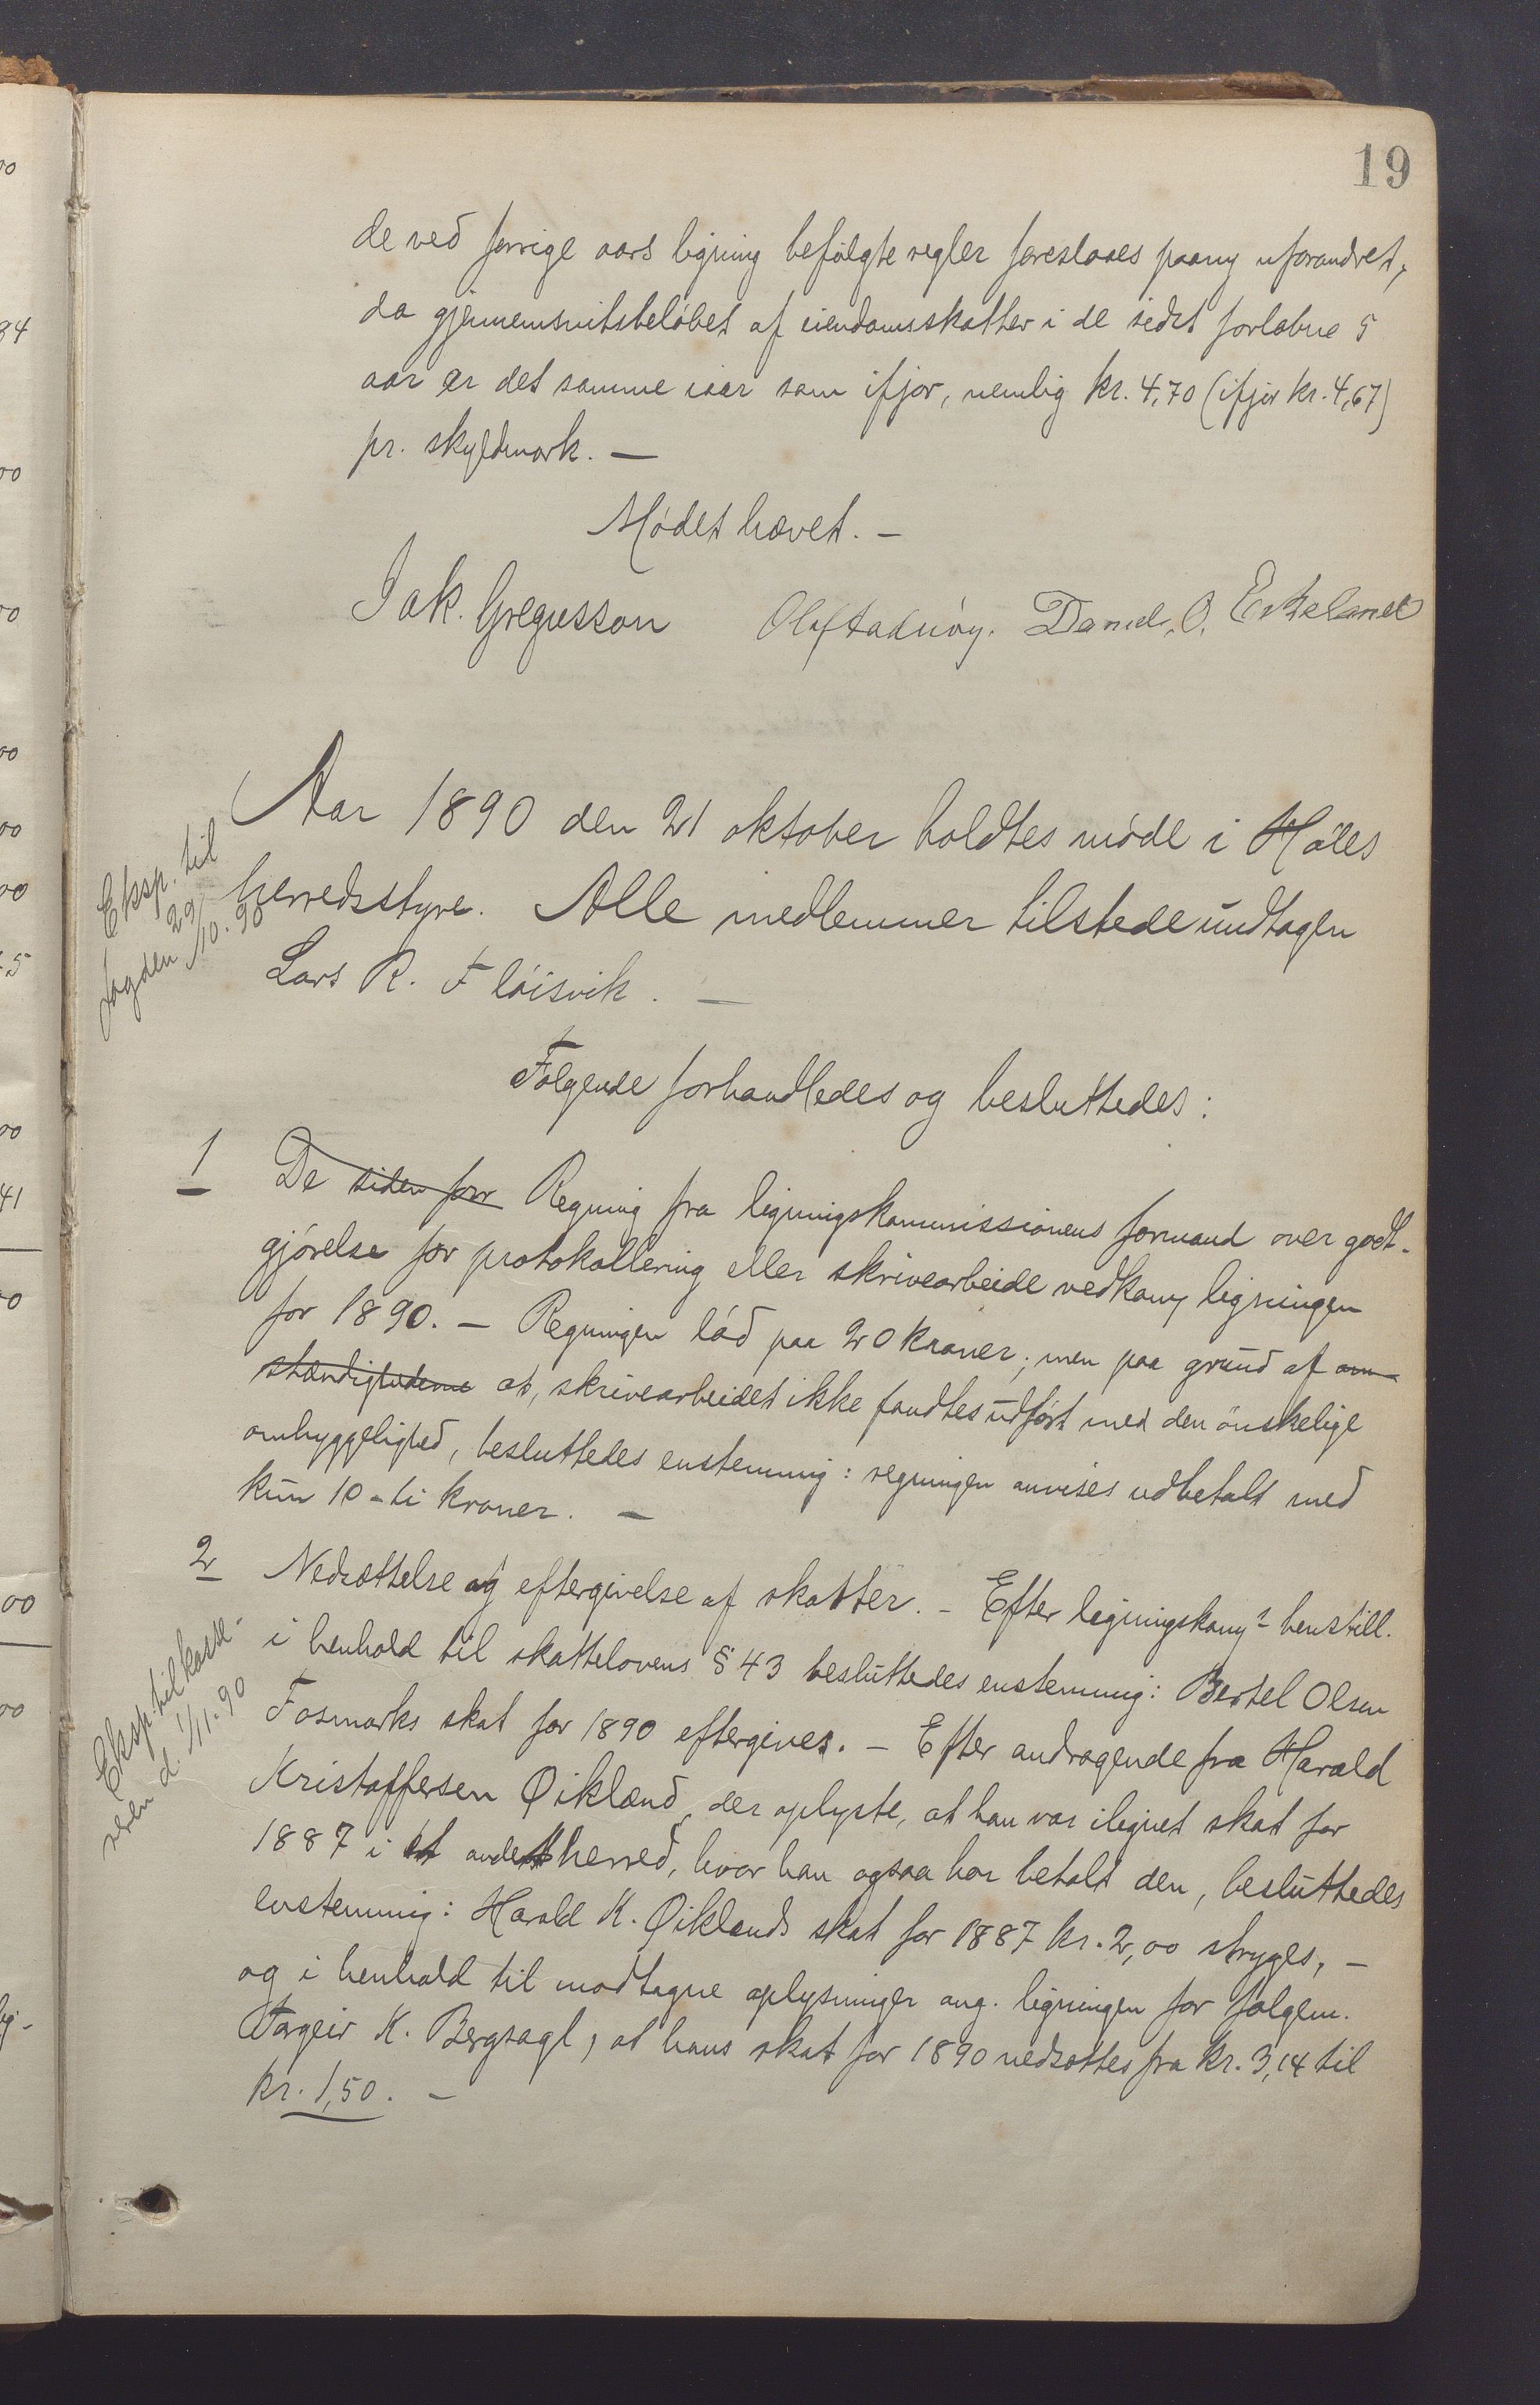 19
de ved forrige aars ligning befølgte regler foreslaaes paany uforandret,
da gjennemsnitsbeløbet af eiendomsskatter i de sidst forløbne 5
aar er det samme iaar som ifjor, nemlig kr. 4,70 (ifjor kr. 4,67)
pr. skyldmark. —
Mødet hævet. —
Jak. Gregussøn Olaf Daniel. O. Eskeland
Aar 1890 den 21 oktober holdtes møde i Høles
Eksp. til
fogden 29/10. 90
herredsstyre. Alle medlemmer tilstede undtagen
Lars R. Fløisvik. —
Følgende forhandledes og besluttedes:
1 De siden forr Regning fra ligningskommissionens formand over godt-
gjørelse for protokollering eller skrivearbeide vedkom ligningen
for 1890. — Regningen lød paa 20 kroner; men paa grund af om-
stændighederne at, skrivearbeidet ikke fandtes udført med den ønskelige
omhyggelighed, besluttedes enstemmig: regningen anvises udbetalt med
kun 10 - ti kroner. —
2 Nedsættelse og eftergivelse af skatter. - Efter ligningskoms henstill.
Eksp. til kasse-
reren d. 1/11. 90
i henhold til skattelovens § 43 besluttedes enstemmig: Bertel Olsen
Fosmarks skat for 1890 eftergives. — Efter andragende fra Harald
Kristoffersen Øikland, der oplyste, at han var ilignet skat for
1887 i et andet herred, hvor han ogsaa har betalt den, besluttedes
enstemmig: Harald K. Øiklands skat for 1887 kr. 2,00 stryges, —
og i henhold til modtagne oplysninger ang. ligningen for følgen.
Torgeir K. Bergsagel, at hans skat for 1890 nedsættes fra kr. 3,14 til
kr. 1,50. —